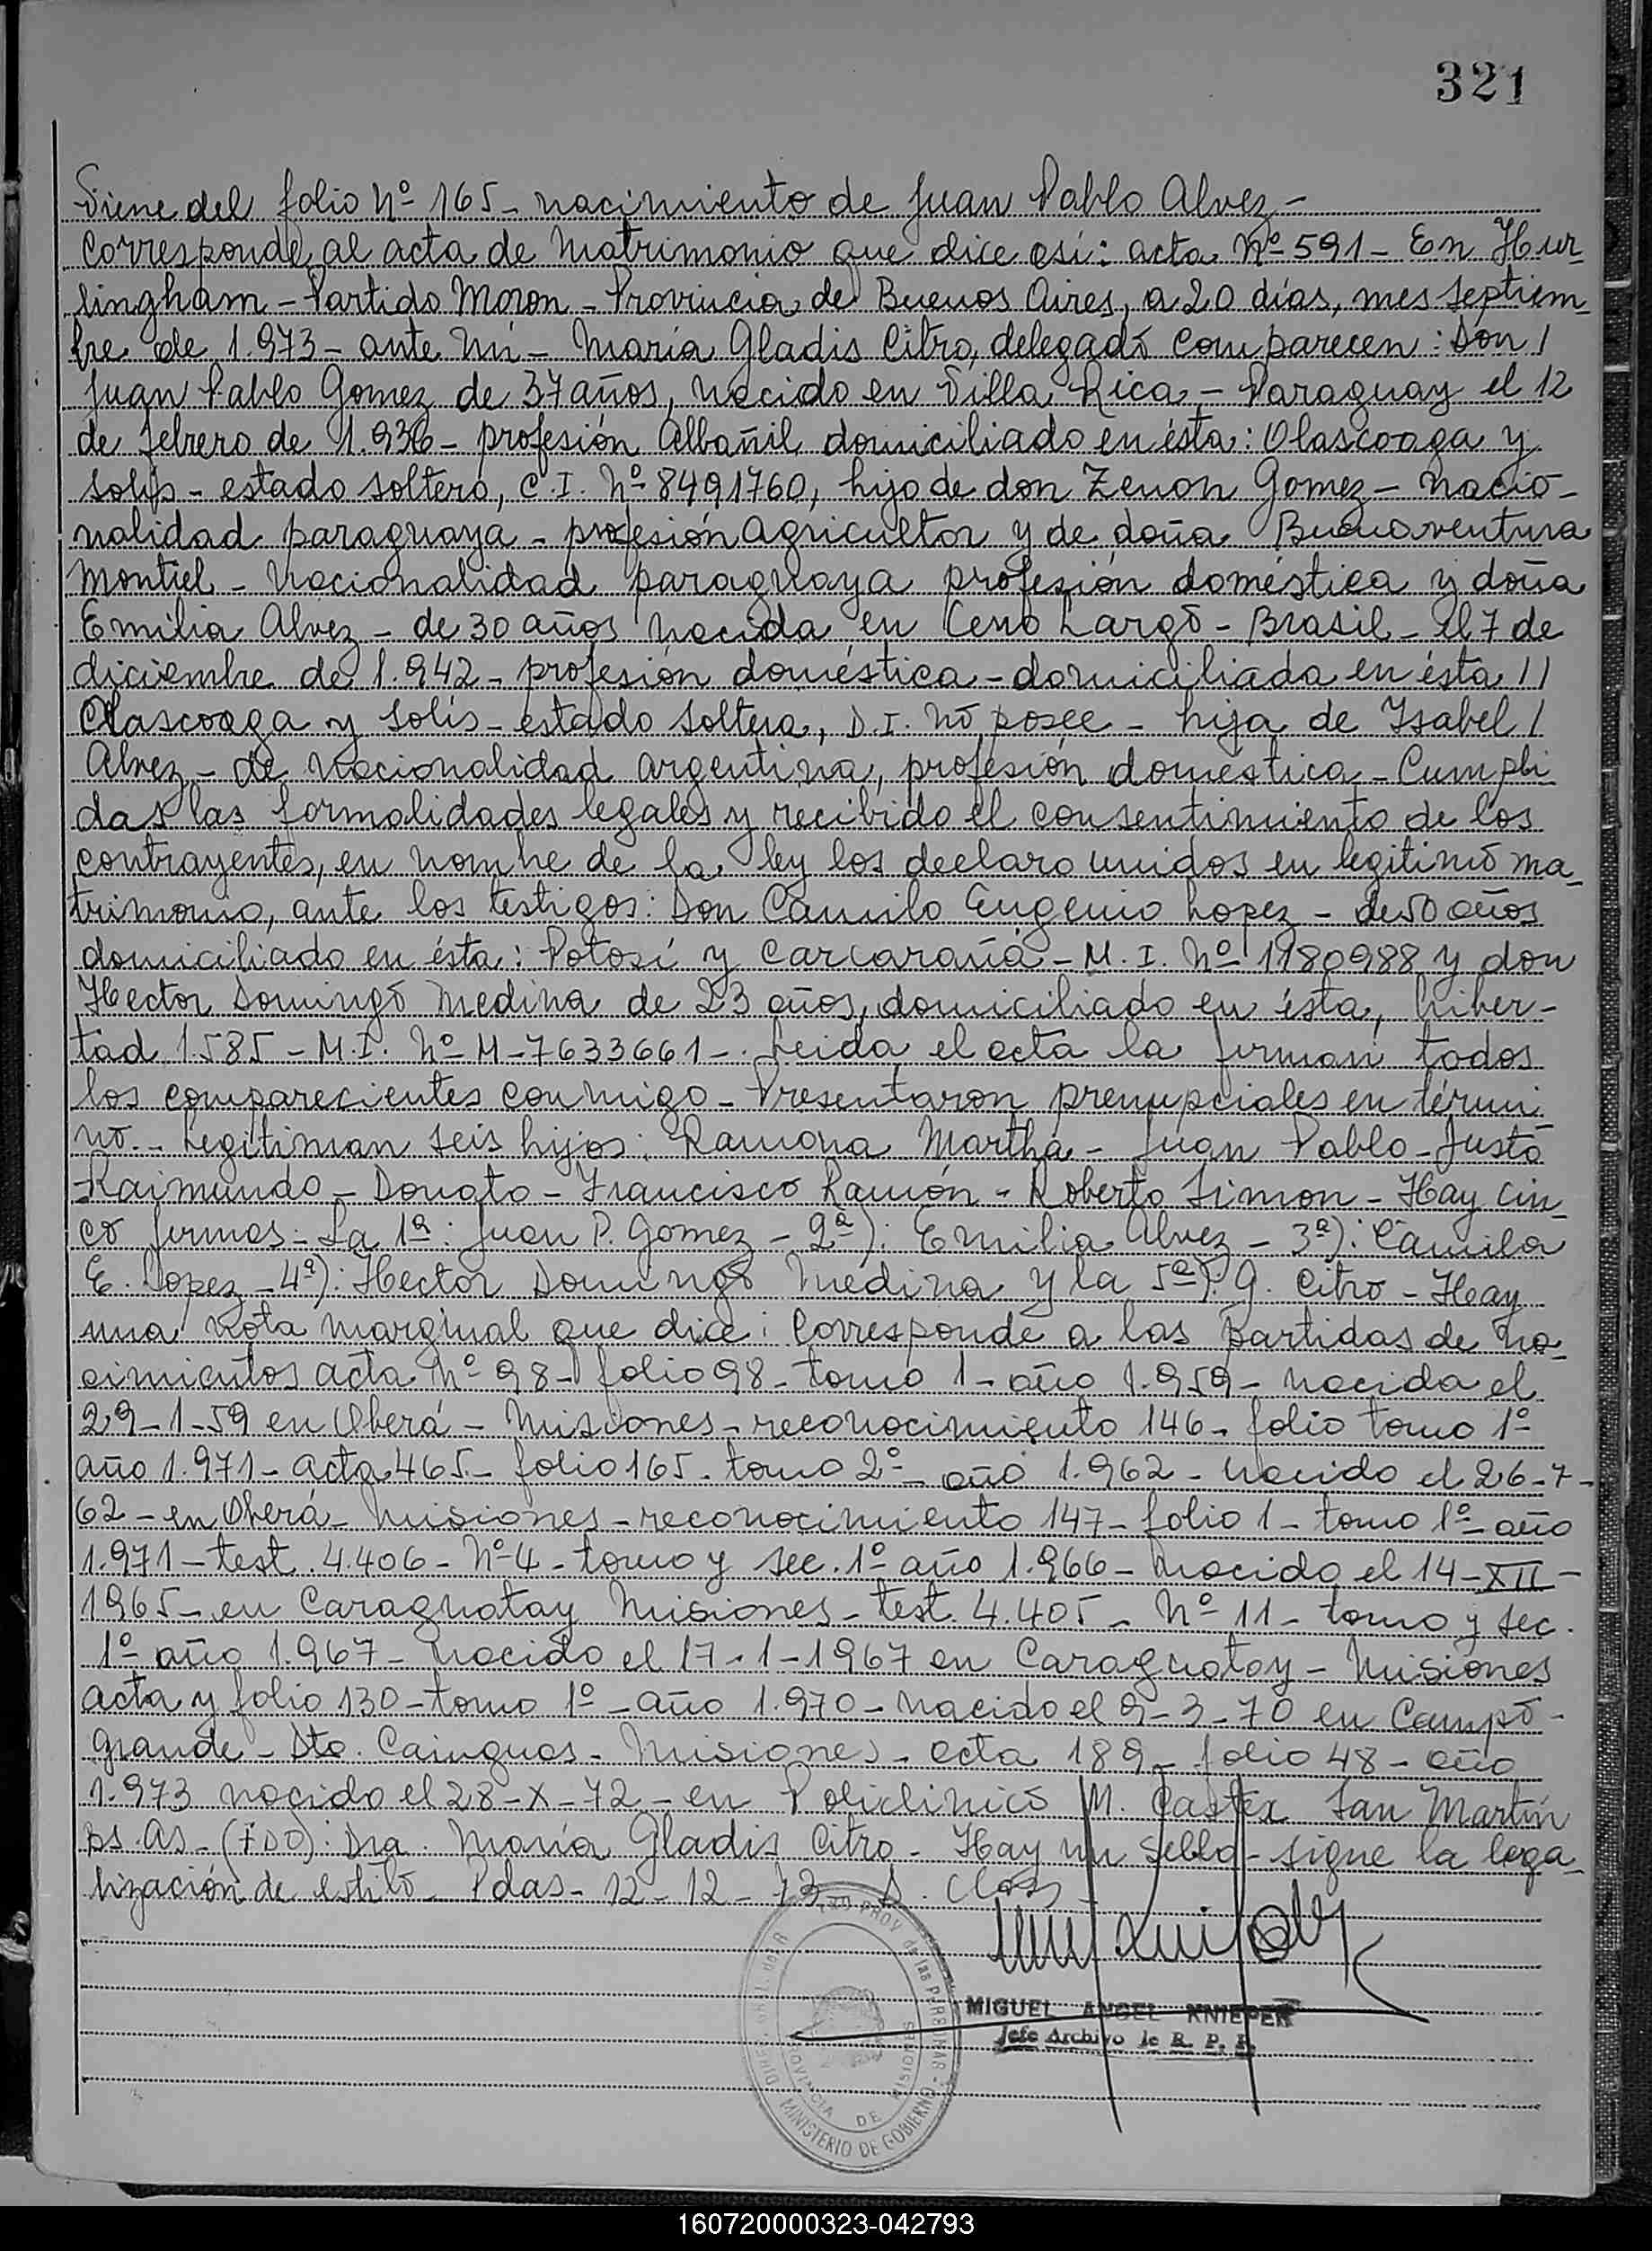 321
Viene del folio Nº 165 - nacimiento de Juan Pablo Alvez -
Corresponde al acta de Matrimonio que dice así: acta Nº 591 - En Hur-
lingham - Partido Moron - Provincia de Buenos Aires, a 20 días, mes septiem-
bre de 1.973 - ante mí - María Gladis Citro, delegado comparecen: Don /
Juan Pablo Gomez de 37 años, nacido en Villa Rica - Paraguay el 12
de febrero de 1.936 - profesión Albañil domiciliado en ésta: Olascoaga y
Solís - estado soltero, C.I. Nº 8491760, hijo de don Zenon Gomez - nacio-
nalidad paraguaya - profesión agricultor y de doña Buenaventura
Montiel - nacionalidad paraguaya profesión doméstica y doña
Emilia Alvez - de 30 años nacida en Cerro Largo - Brasil - el 7 de
diciembre de 1.942 - profesión doméstica - domiciliada en ésta //
Olascoaga y Solís - estado soltera, D.I. no posee - hija de Isabel /
Alvez - de nacionalidad argentina, profesión doméstica - Cumpli
das las formalidades legales y recibido el consentimiento de los
contrayentes, en nombre de la ley los declaro unidos en legitimo ma-
trimonio, ante los testigos: Don Camilo Eugenio Lopez - de 50 años
domiciliado en ésta: Potosí y Carcarañá - M.I. Nº 1180988 y don
Hector Domingo Medina de 23 años, domiciliado en ésta, Liber-
tad 1585 - M.I. Nº M-7633661 -. Leida el acta la firman todos
los comparecientes conmigo - Presentaron prenupciales en térmi-
no. - Legitiman seis hijos: Ramona Martha - Juan Pablo - Justo
Raimundo - Donato - Francisco Ramón - Roberto Simon - Hay cin-
co firmas - La 1ª: Juan P. Gomez - 2ª): Emilia Alvez - 3ª): Camilo
E. Lopez - 4ª): Hector Domingo Medina y la 5ª): G. Citro - Hay
una nota marginal que dice: Corresponde a las partidas de na-
cimientos acta Nº 98 - folio 98 - tomo 1 - año 1.959 - nacida el
29-1-59 en Oberá - Misiones - reconocimiento 146 - folio tomo 1º
año 1.971 - acta 465 - folio 165 - tomo 2º - año 1.962 - nacido el 26-7-
62 - en Oberá - Misiones - reconocimiento 147 - folio 1 - tomo 1º - año
1.971 - test. 4.406 - Nº 4 - tomo y sec. 1º año 1.966 - nacido el 14-XII-
1965 - en Caraguatay Misiones - test. 4.405 - Nº 11 - tomo y sec.
1º año 1.967 - nacido el 17-1-1967 en Caraguatay - Misiones
acta y folio 130 - tomo 1º - año 1.970 - nacido el 9-3-70 en Campo -
grande - Dto. Cainguas - Misiones - acta 189 - folio 48 - año
1.973 nacido el 28-X-72 - en Policlinico M. Castex San Martín
Bs. As. - (FDO): Dra. María Gladis Citro - Hay un sello - sigue la lega-
lización de estilo - Pdas - 12-12-73
MIGUEL ANGEL KNIEPER
Jefe Archivo de R. P. P.
PROV. de las PERSONAS
PROVINCIA DE MISIONES
MINISTERIO DE GOBIERNO
160720000323-042793